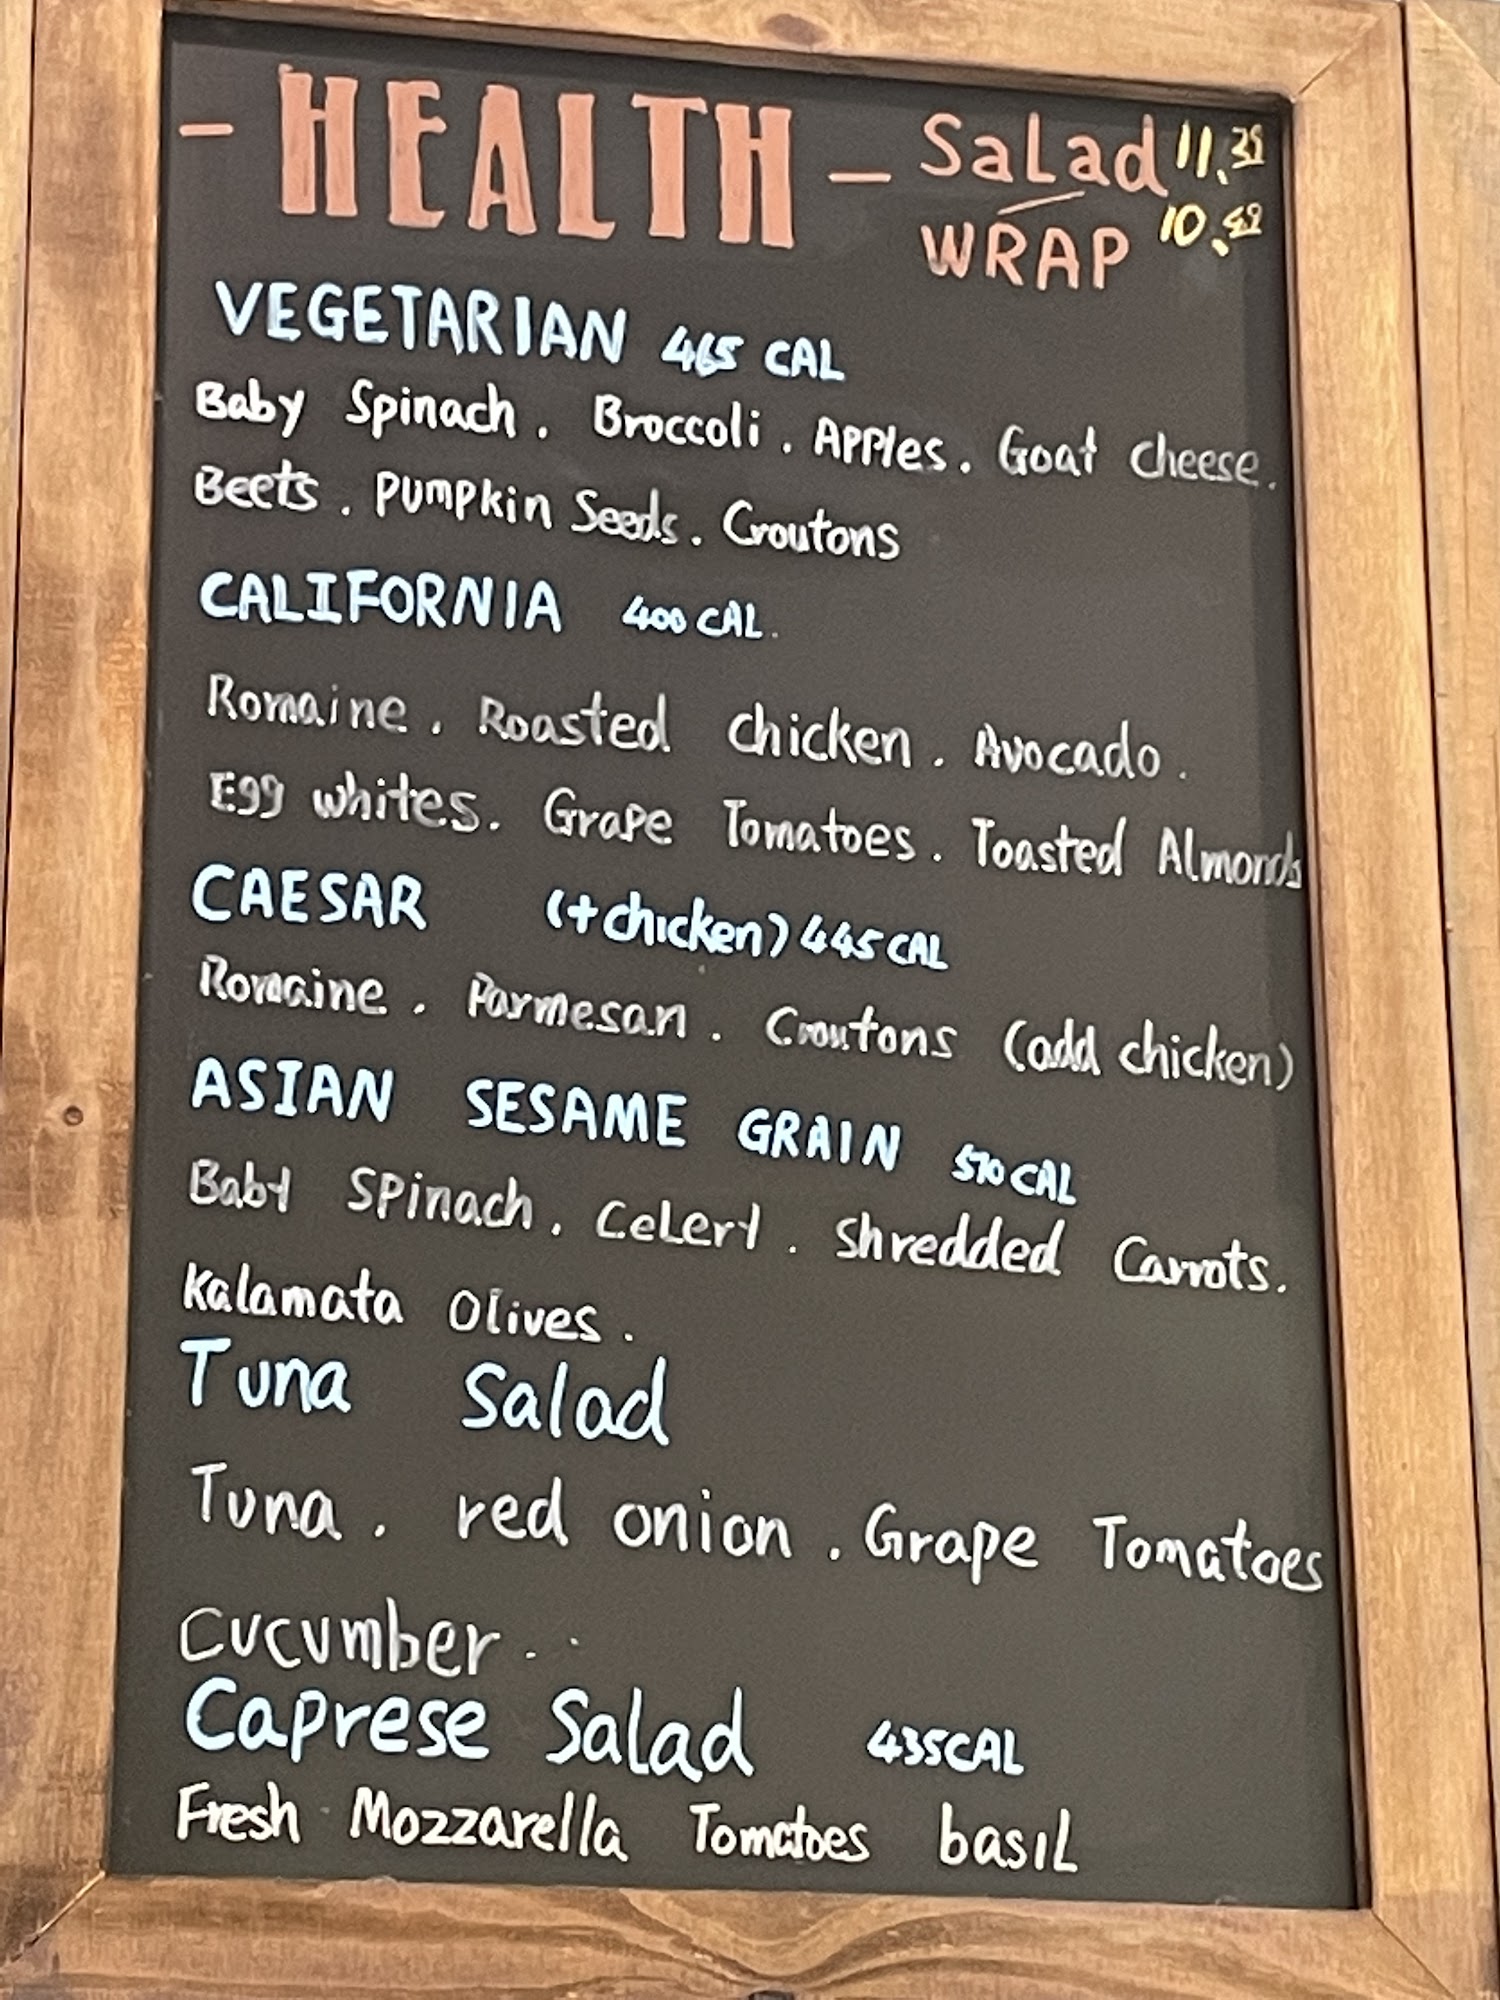 - HEALTH - SaLad 11.39
WRAP 10.49
VEGETARIAN 465 CAL
Baby Spinach. Broccoli. APPles. Goat cheese.
Beets. PUMPKin Seeds. Croutons
CALIFORNIA 400 CAL.
Romaine. Roasted chicken. Avocado.
Egg whites. Grape Tomatoes. Toasted Almonds
CAESAR (+chicken) 445 CAL
Romaine. Parmesan. Croutons (add chicken)
ASIAN SESAME GRAIN 510 CAL
Baby Spinach. CeLery. Shredded Carrots.
Kalamata Olives.
Tuna Salad
Tuna. red onion. Grape Tomatoes
Cucumber.
Caprese Salad 435CAL
Fresh Mozzarella Tomatoes basiL